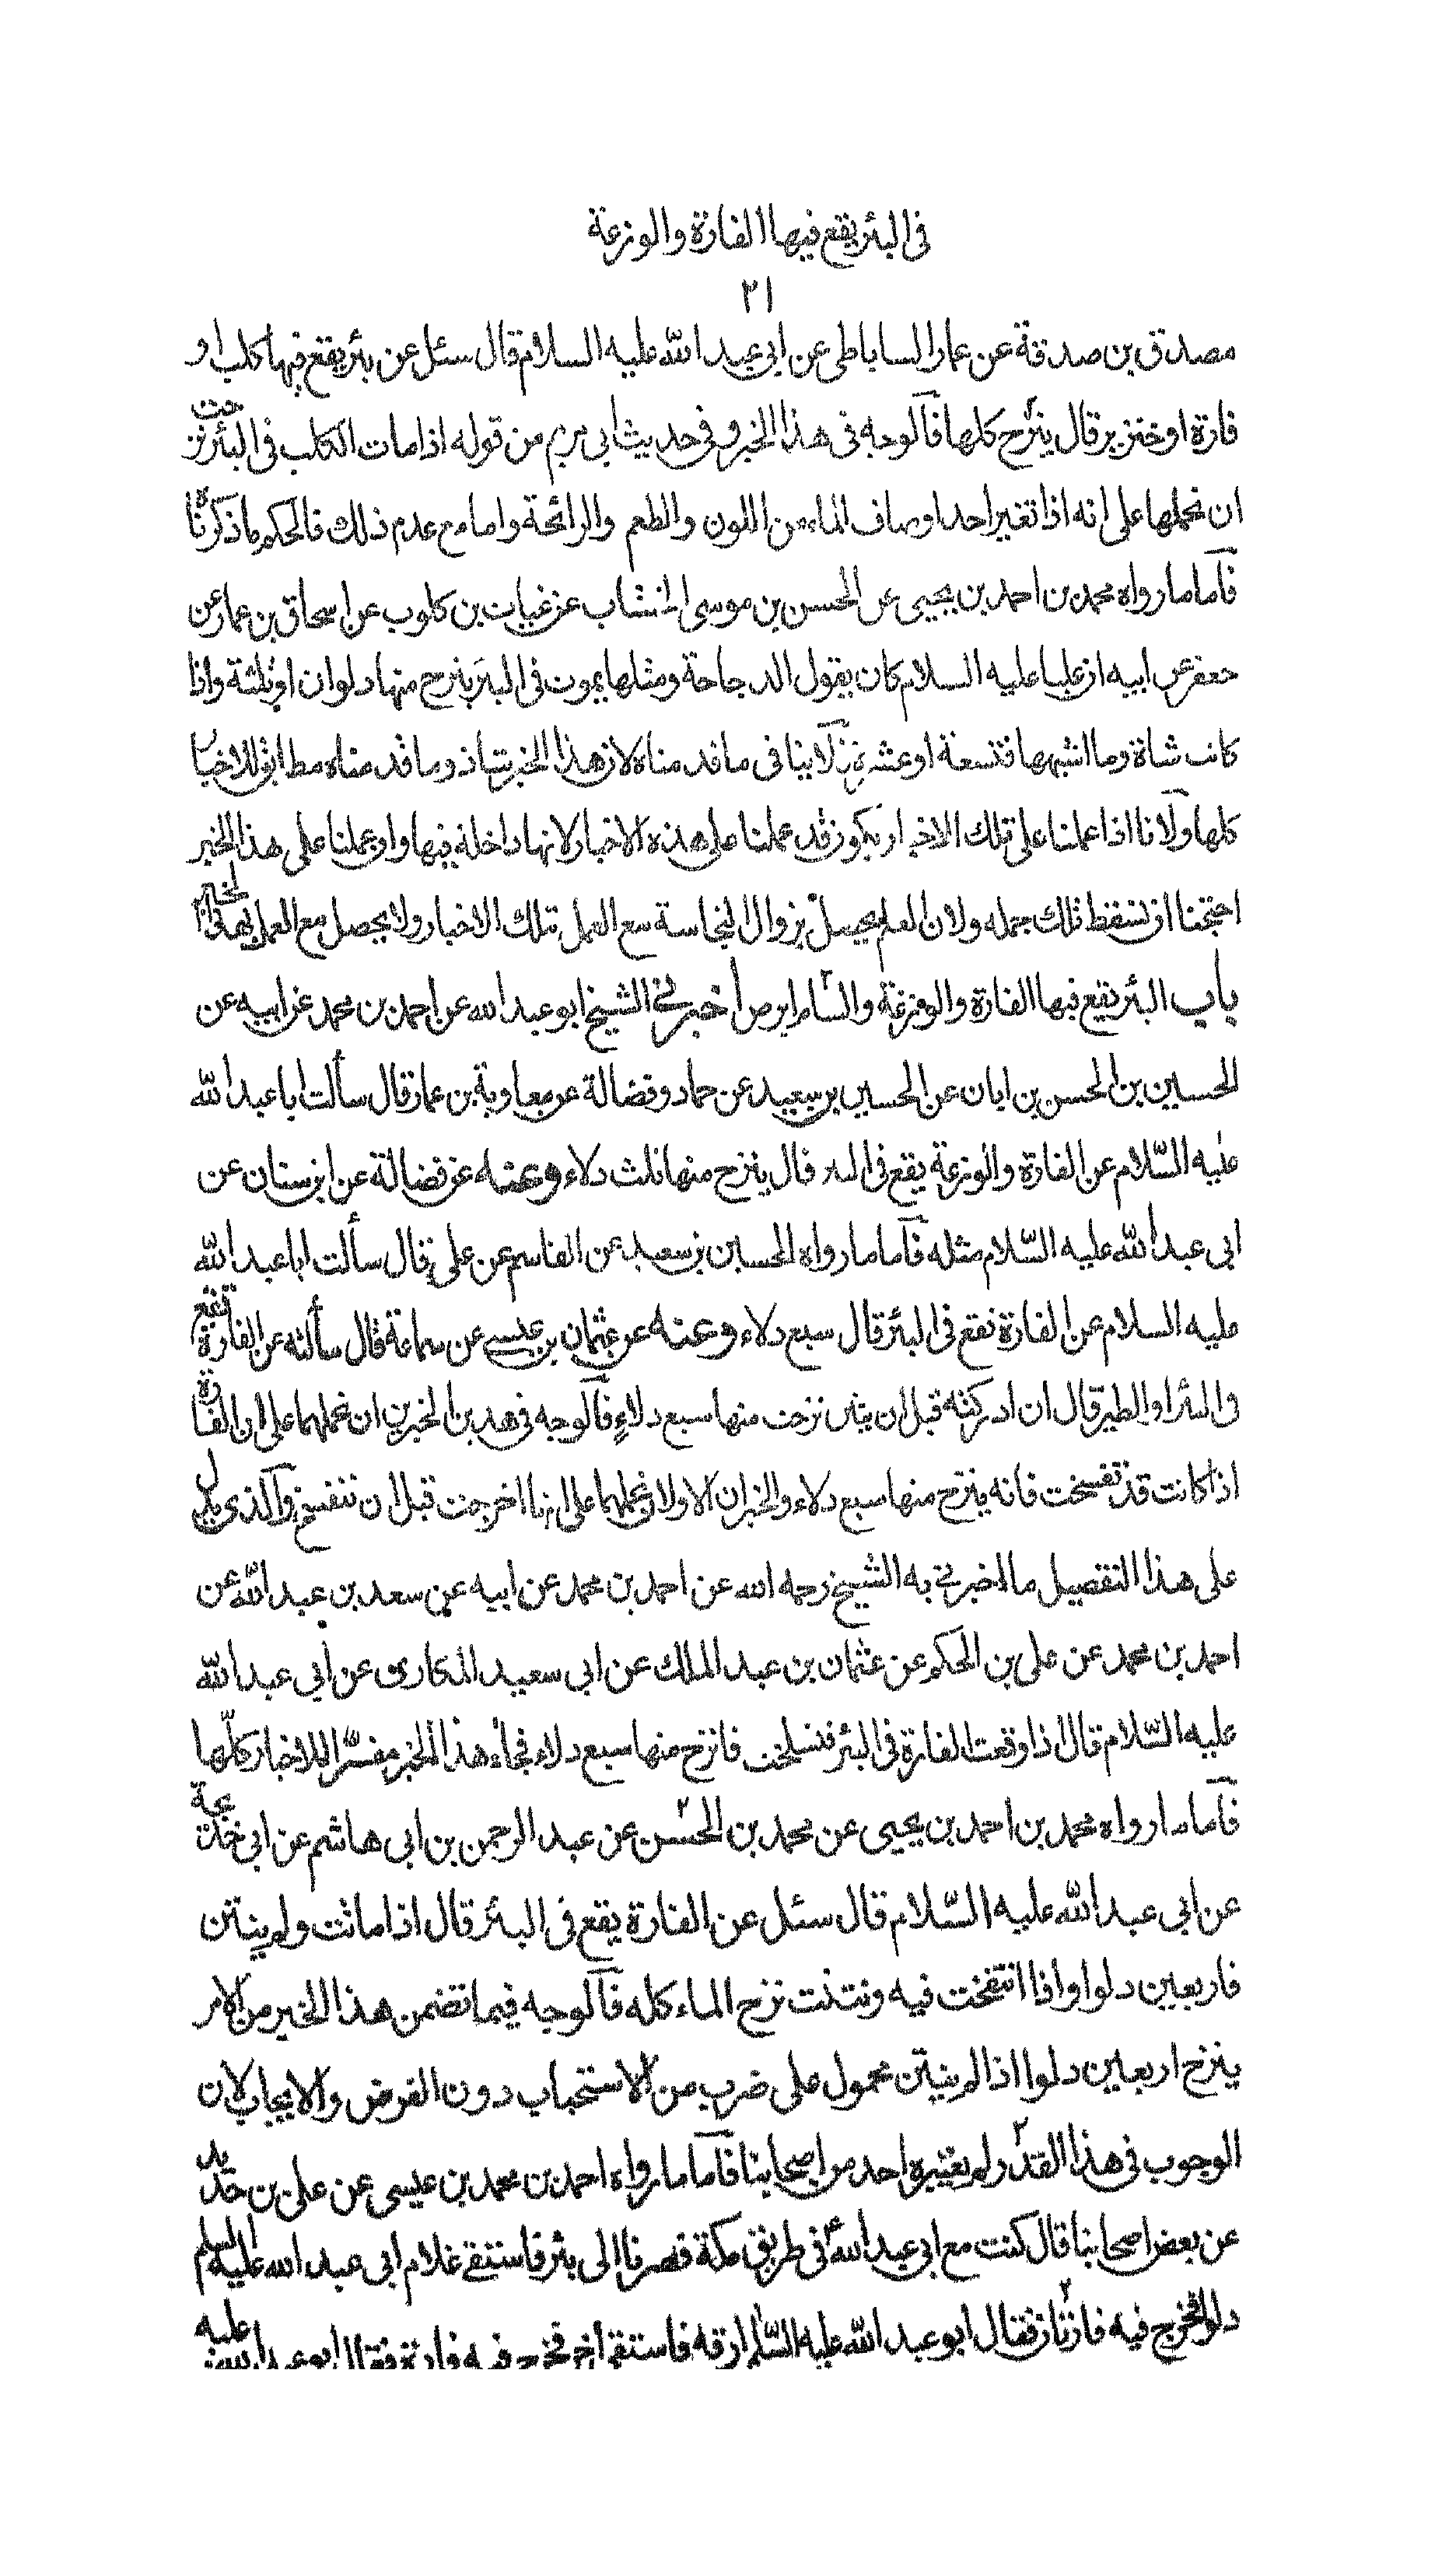 في البئر يقع فيها الفارة والوزغة
٢١
مصدق بن صدقة عن عمار الساباطى عن ابي عبد الله عليه السلام قال سئل عن بئر يقع فيها كلب او
فارة او خنزير قال ينزح كلها فالوجه في هذا الخبر و في حديث ابي مريم من قوله اذا مات الكلب في البئر نزحت
ان نحملها على انه اذا تغير احد اوصاف الماء من اللون والطعم والرائحة واما مع عدم ذلك فالحكم ما ذكرناه
فاما ما رواه محمد بن احمد بن يحيى عن الحسن بن موسى الخشاب عن غياث بن كلوب عن اسحاق بن عمار عن
جعفر عن ابيه ان عليا عليه السلام كان يقول الدجاجة ومثلها يموت في البئر ينزح منها دلوان او ثلثة واذا
كانت شاة وما اشبهها فتسعة او عشرة فلا ينافى ما قدمناه لان هذا الخبر شاذ وما قدمناه مطابق للاخبار
كلها ولانا اذا عملنا على تلك الاخبار نكون قد عملنا على هذه الاخبار لانها داخلة فيها وان عملنا على هذا الخبر
احتجنا ان نسقط تلك جملة ولان العلم يحصل بزوال النجاسة مع العمل بتلك الاخبار ولا يحصل مع العمل بهذا الخبر
باب البئر يقع فيها الفارة والوزغة والسام ابرص أخبرنى الشيخ ابو عبد الله عن احمد بن محمد عن ابيه عن
الحسين بن الحسن بن ابان عن الحسين بن سعيد عن حماد وفضالة عن معاوية بن عمار قال سألت ابا عبد الله
عليه السّلام عن الفارة والوزغة يقع في البئر قال ينزح منها ثلث دلاء وعنه عن فضالة عن ابن سنان عن
ابى عبد الله عليه السّلام مثله فاما ما رواه الحسين بن سعيد عن القاسم عن على قال سألت ابا عبد الله
عليه السلام عن الفارة تقع في البئر قال سبع دلاء وعنه عن عثمان بن عيسى عن سماعة قال سألته عن الفارة تقع
في البئر او الطير قال ان ادركته قبل ان ينتن نزحت منها سبع دلاءٍ فالوجه في هذين الخبرين ان نحملهما على ان الفارة
اذا كانت قد تفسخت فانه ينزح منها سبع دلاء والخبران الاولان نحملهما على انها اخرجت قبل ان تتفسخ والذى يدل
على هذا التفصيل ما اخبرنى به الشيخ رحمه الله عن احمد بن محمد عن ابيه عن سعد بن عبد الله عن
احمد بن محمد عن على بن الحكم عن عثمان بن عبد الملك عن ابى سعيد المكارى عن ابي عبد الله
عليه السّلام قال اذا وقعت الفارة في البئر فتسلخت فانزح منها سبع دلاء فجاء هذا الخبر مفسّرا للاخبار كلّها
فاما ما رواه محمد بن احمد بن يحيى عن محمد بن الحسين عن عبد الرحمن بن ابى هاشم عن ابى خديجة
عن ابي عبد الله عليه السّلام قال سئل عن الفارة يقع في البئر قال اذا ماتت ولم ينتن
فاربعين دلوا واذا انتفخت فيه ونتنت نزح الماء كله فالوجه فيما تضمن هذا الخبر من الامر
ينزح اربعين دلوا اذا لم ينتن محمول على ضرب من الاستحباب دون الفرض والايجاب لان
الوجوب في هذا القدر لم يعتبره احد من اصحابنا فاما ما رواه احمد بن محمد بن عيسى عن على بن حديد
عن بعض اصحابنا قال كنت مع ابي عبد الله ع في طريق مكة فصرنا الى بئر فاستقى غلام ابى عبد الله عليه السلم
دلوا فخرج فيه فارتان فقال ابو عبد الله عليه السّلم ارقه فاستقى اخر فخرج فيه فارة فقال ابو عبد الله عليه